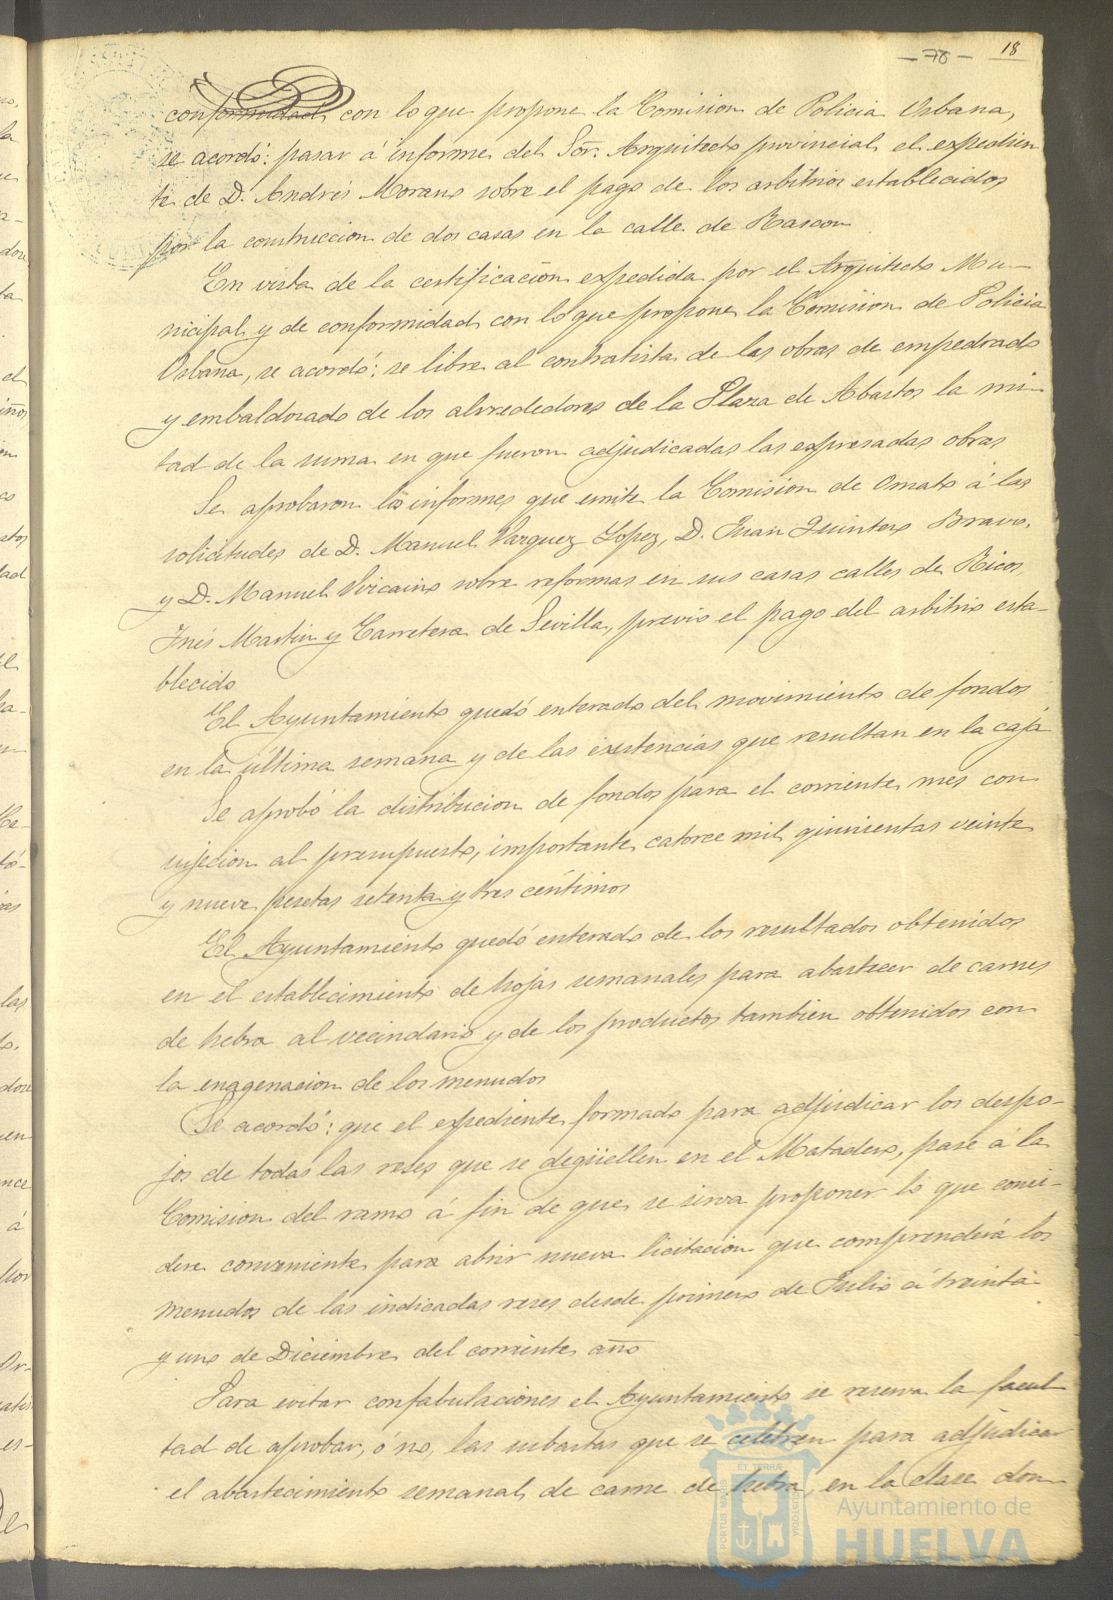 - 76 - 18
conformidad con lo que propone la Comision de Policia Urbana,
se acordó: pasar á informe del Sor. Arquitecto provincial el expedien
te de D. Andrés Morano sobre el pago de los arbitrios establecidos
por la construccion de dos casas en la calle de Rascon
En vista de la certificación expedida por el Arquitecto Mu-
nicipal y de conformidad con lo que propone la Comision de Policia
Urbana, se acordó: se libre al contratista de las obras de empedrado
y embaldosado de los alrededores de la Plaza de Abastos la mi-
tad de la suma en que fueron adjudicadas las expresadas obras
Se aprobaron los informes que emite la Comision de Ornato á las
solicitudes de D. Manuel Vazquez Lopez, D. Juan Quintero Bravo,
y D. Manuel Vizcaino sobre reformas en sus casas calles de Ricos
Inés Martin y Carretera de Sevilla, previo el pago del arbitrio esta-
blecido
El Ayuntamiento quedó enterado del movimiento de fondos
en la última semana y de las existencias que resultan en la caja
Se aprobó la distribucion de fondos para el corriente mes con
sujecion al presupuesto, importante catorce mil quinientas veinte
y nueve pesetas setenta y tres céntimos
El Ayuntamiento quedó enterado de los resultados obtenidos
en el establecimiento de hojas semanales para abastecer de carnes
de hebra al vecindario y de los productos tambien obtenidos con
la enagenacion de los menudos
Se acordó: que el expediente formado para adjudicar los despo-
jos de todas las reses que se degüellen en el Matadero, pase á la
Comision del ramo á fin de que se sirva proponer lo que consi-
dere conveniente para abrir nueva licitacion que comprenderá los
menudos de las indicadas reses desde primero de Julio á treinta
y uno de Diciembre del corriente año
Para evitar confabulaciones el Ayuntamiento se reserva la facul
tad de aprobar, ó no, las subastas que se celebren para adjudicar
el abastecimiento semanal de carne de hebra, en la clase don
PORTUS MARIS ET TERRÆ CUSTODIA
Ayuntamiento de
HUELVA